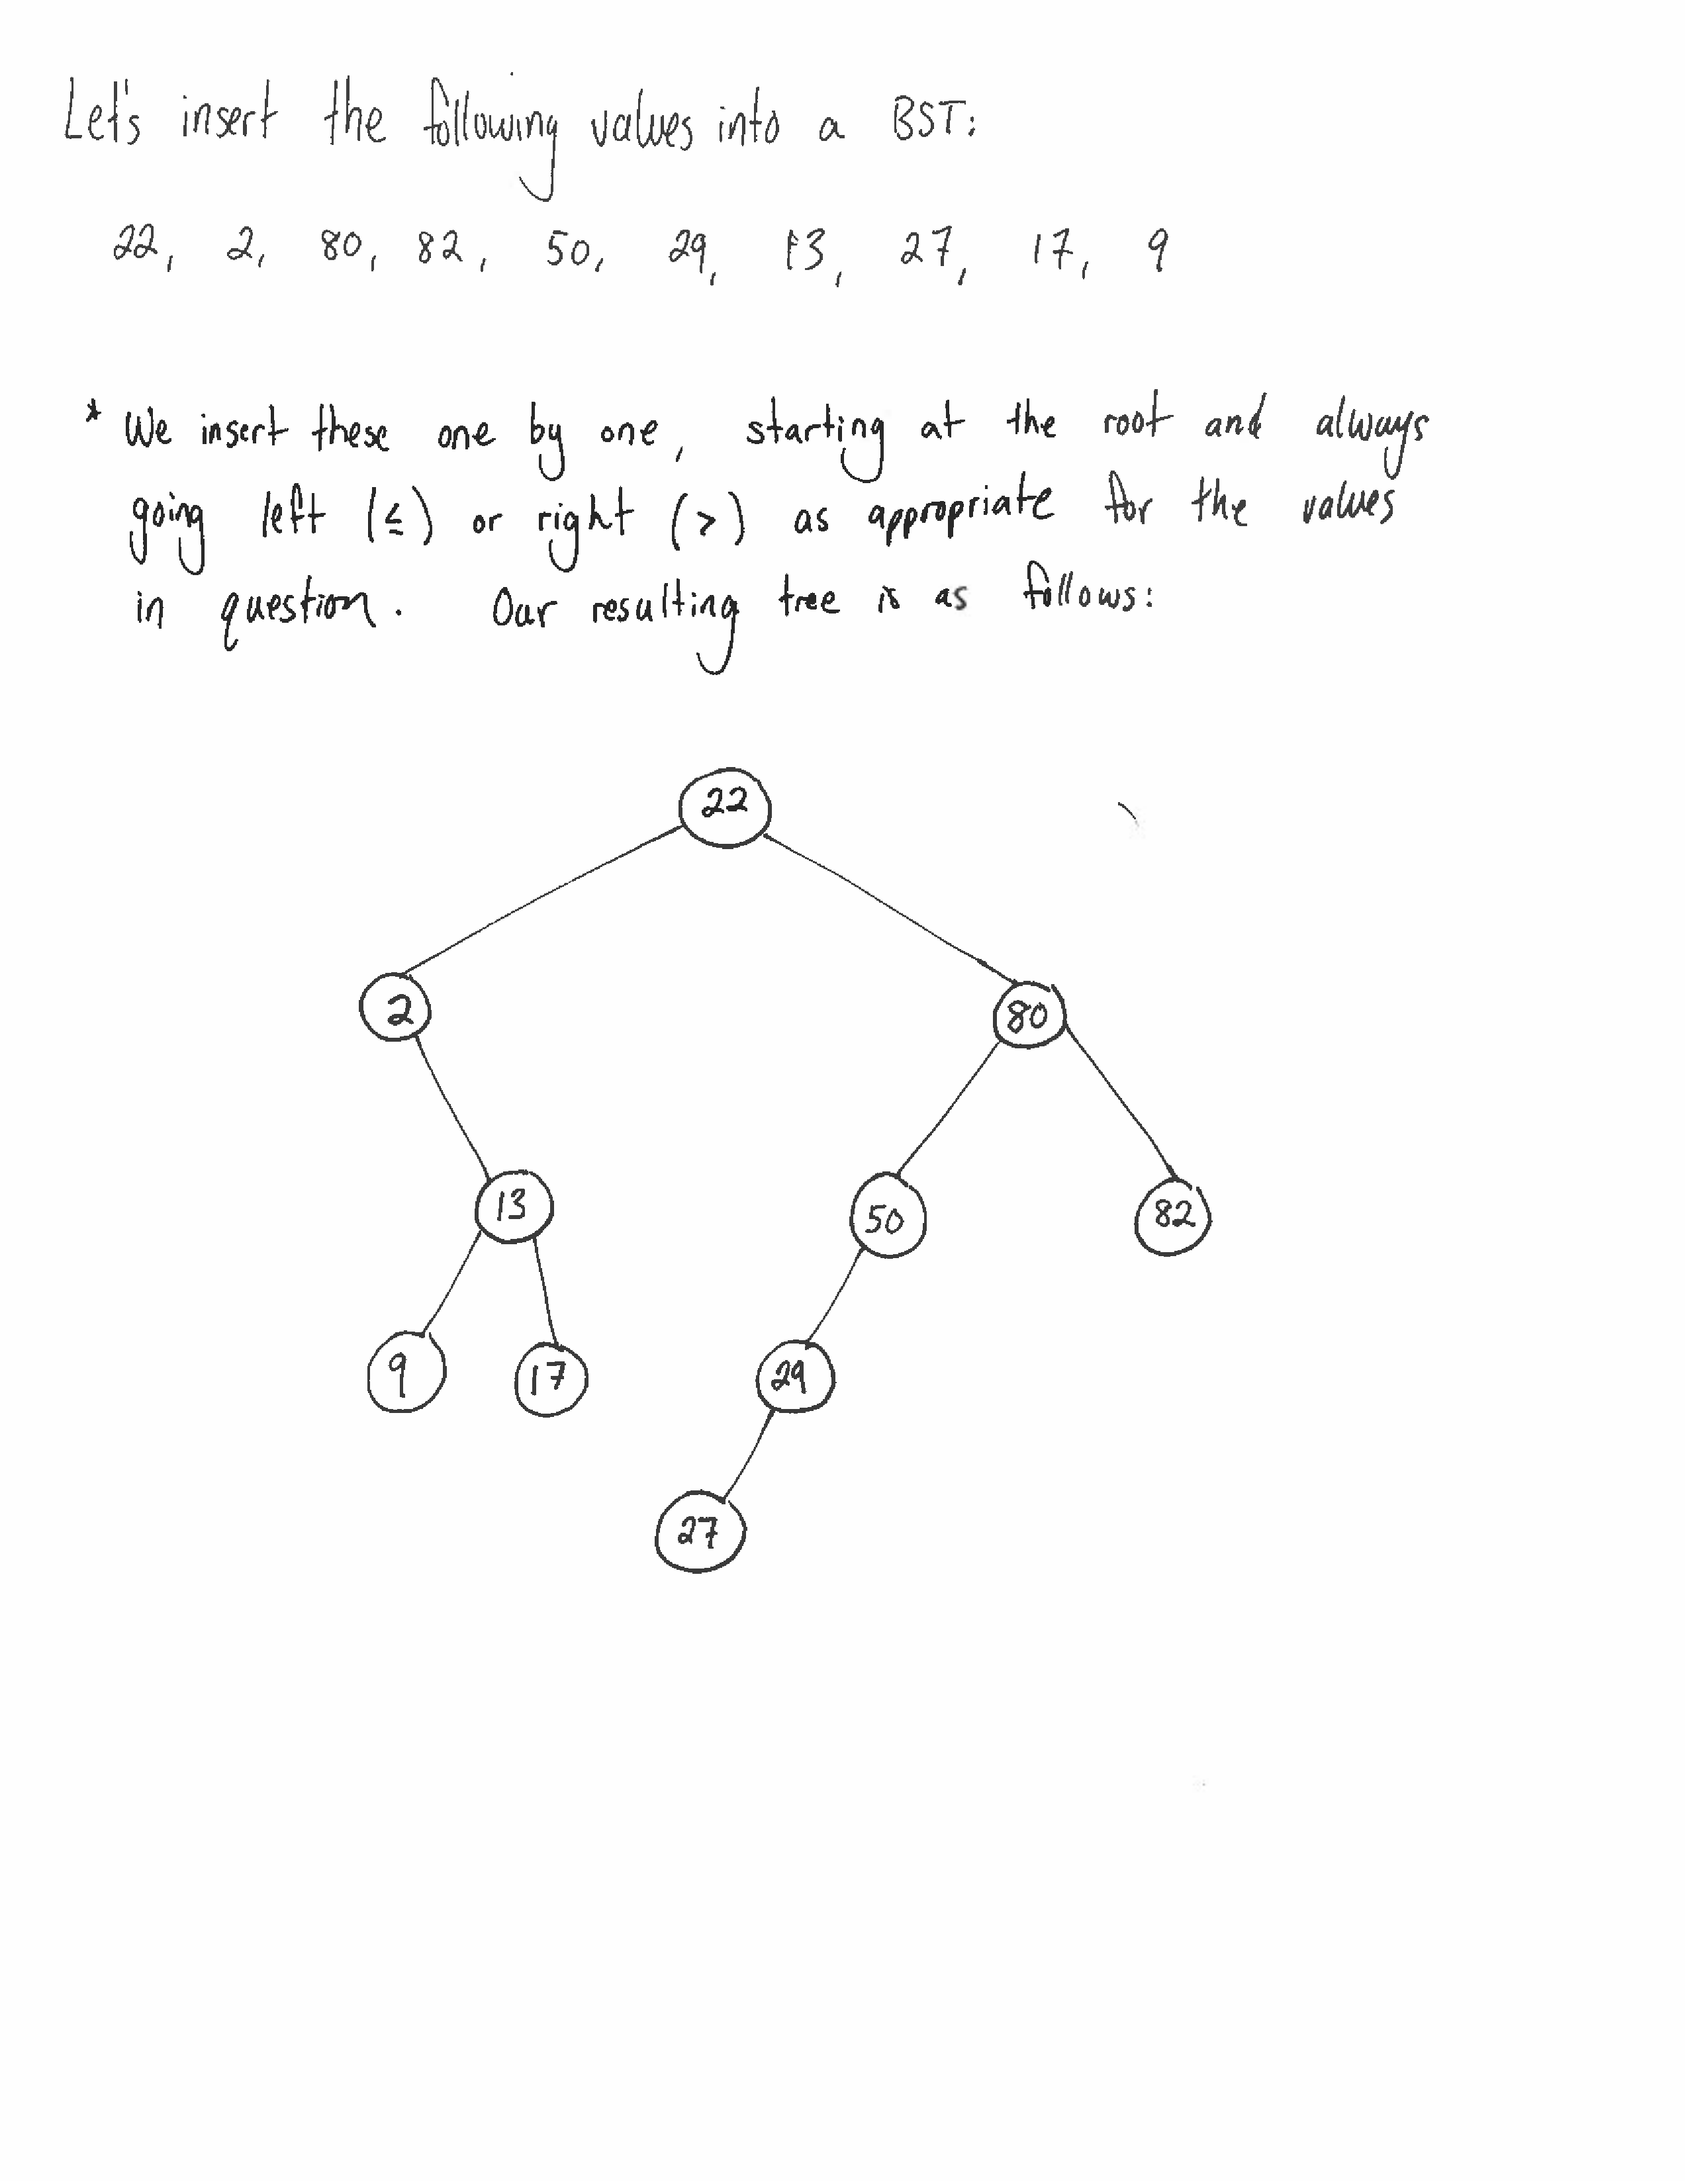 Let's insert the following values into a BST:
22, 2, 80, 82, 50, 29, 13, 27, 17, 9
* We insert these one by one, starting at the root and always
going left (≤) or right (>) as appropriate for the values
in question. Our resulting tree is as follows:
22
2 80
13 50 82
9 17 29
27